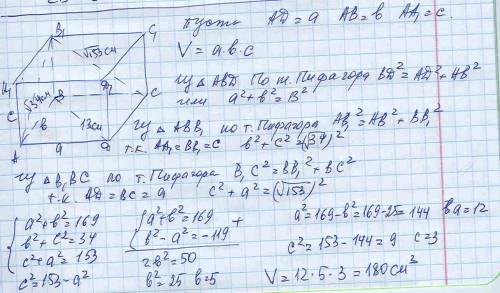 Пусть AD = a AB = b AA₁ = c.
V = a·b·c
B₁ C₁
√153 см
A₁ D₁
√34 см B C
c b 13 см
A a D
Из △ ABD По т. Пифагора BD² = AD² + AB²
или a² + b² = B²
Из △ ABB₁ по т. Пифагора AB₁² = AB² + BB₁²
т.к. AA₁ = BB₁ = c b² + c² = (√34)²
Из △ B₁BC по т. Пифагора B₁C² = BB₁² + BC²
т.к. AD = BC = a c² + a² = (√153)²
{ a² + b² = 169
b² + c² = 34
c² + a² = 153
c² = 153 - a²
{ a² + b² = 169 +
b² - a² = -119
2b² = 50
b² = 25 b = 5
a² = 169 - b² = 169 - 25 = 144 a = 12
c² = 153 - 144 = 9 c = 3
V = 12·5·3 = 180 см³